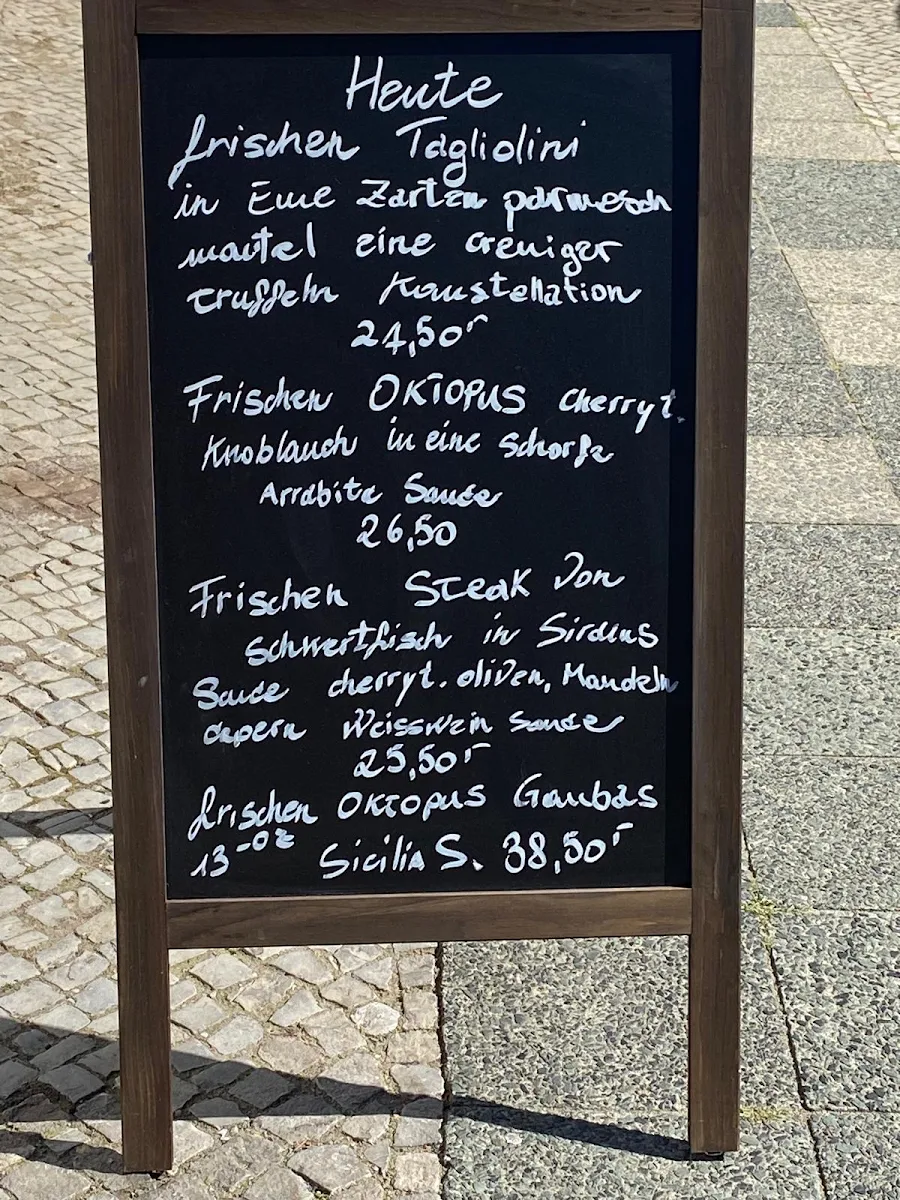 Heute
frischen Tagliolini
in Eine Zarten parmesan
mantel eine creniger
truffeln Konstellation
24,50
Frischen OKTOPUS cherryt.
Knoblauch in eine schorfe
Arrabita Sauce
26,50
Frischen Steak Von
Schwertfisch in
Sauce cherryt. oliven, Mandeln
capern Weisswein Sauce
25,50
frischen OKTOPUS Gambas
13 Sicilia S. 38,50